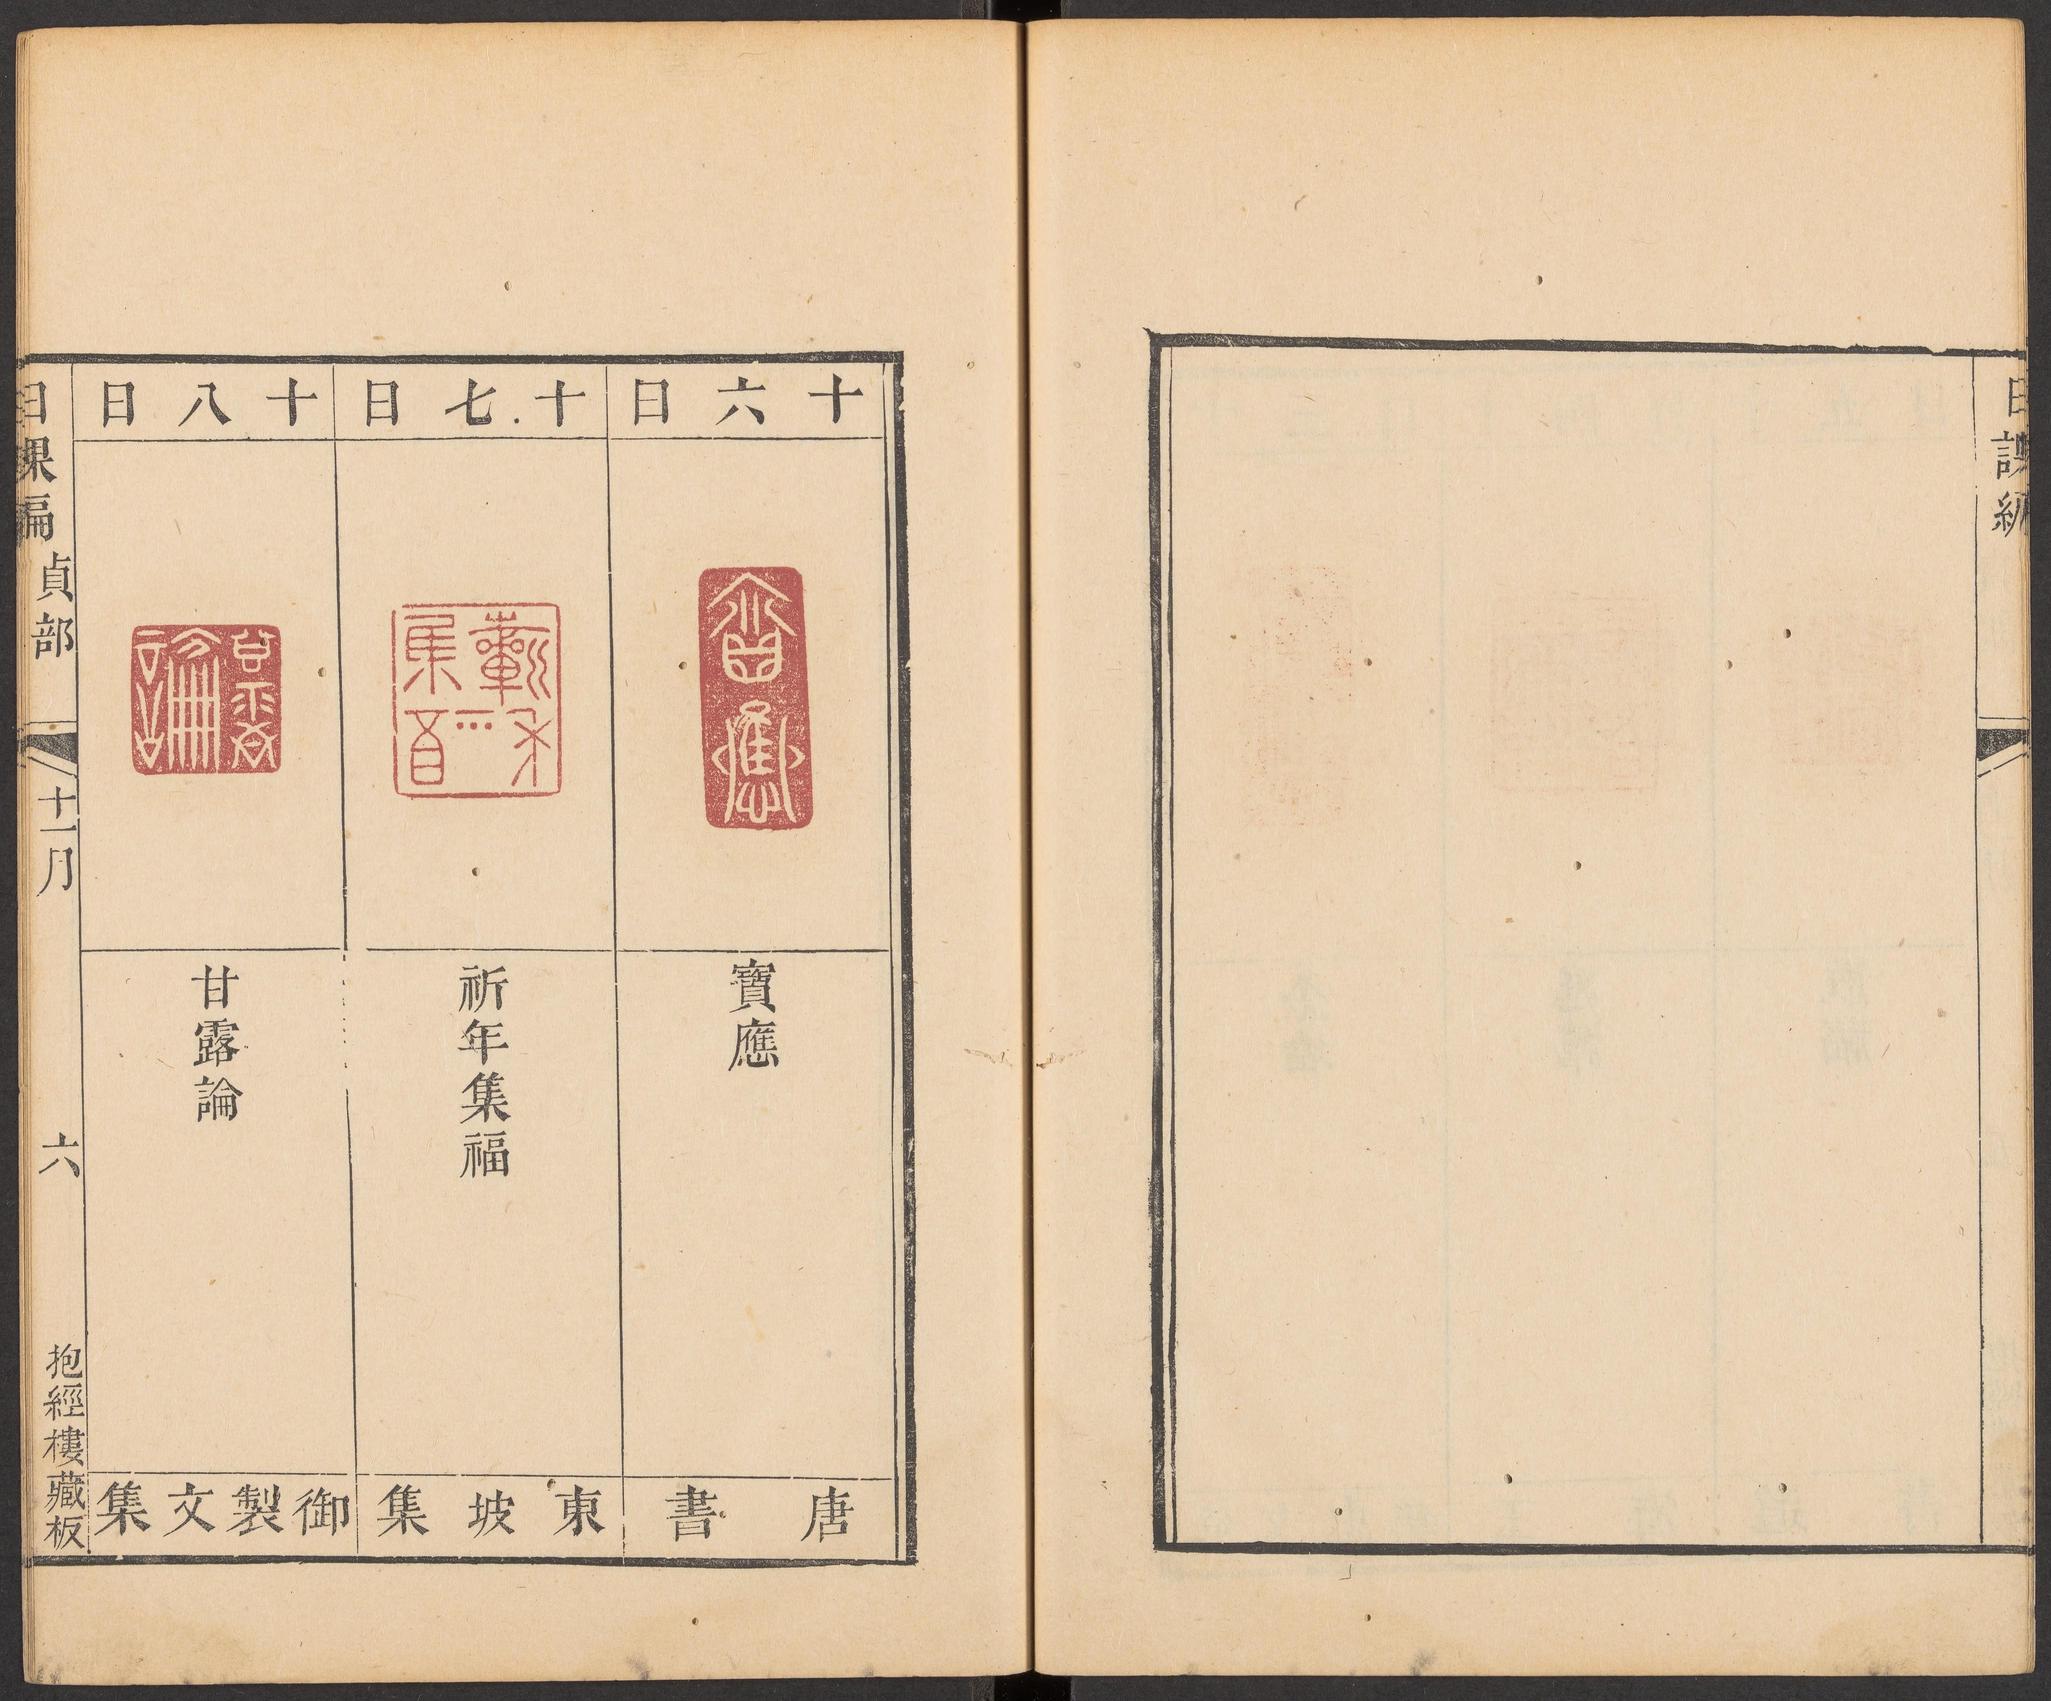 日課編
十六日
寶應
唐書
十七日
祈年集福
東坡集
十八日
甘露論
御製文集
日課編 貞部 十一月 六 抱經樓藏板